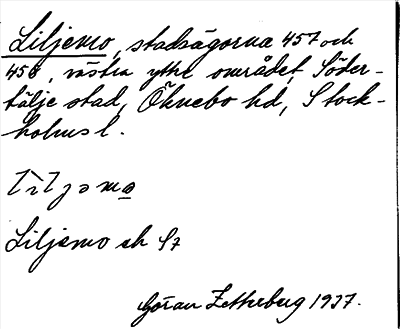 Liljemo, stadsägorna 457 och
458, västra yttre området, Söder-
tälje stad, Öknebo hd, Stock-
holms l.
Liljemo sk
Göran Zetterberg 1937.